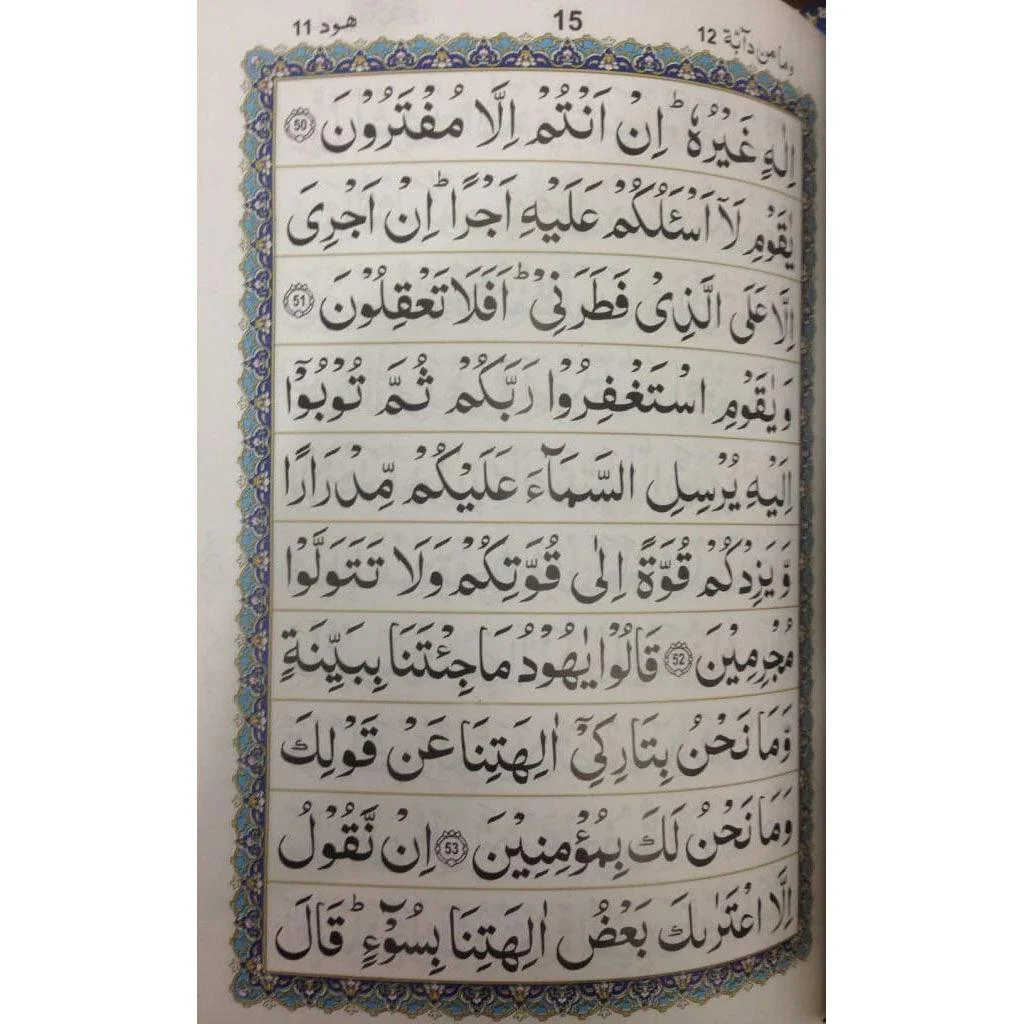 وما من دآبّة 12 15 هود 11
اِلٰهٍ غَيْرُهٗ ؕ اِنْ اَنْتُمْ اِلَّا مُفْتَرُوْنَ 50
يٰقَوْمِ لَاۤ اَسْـَٔلُكُمْ عَلَيْهِ اَجْرًا ؕ اِنْ اَجْرِىَ
اِلَّا عَلَى الَّذِىْ فَطَرَنِىْ ؕ اَفَلَا تَعْقِلُوْنَ 51
وَيٰقَوْمِ اسْتَغْفِرُوْا رَبَّكُمْ ثُمَّ تُوْبُوْۤا
اِلَيْهِ يُرْسِلِ السَّمَآءَ عَلَيْكُمْ مِّدْرَارًا
وَّيَزِدْكُمْ قُوَّةً اِلٰى قُوَّتِكُمْ وَلَا تَتَوَلَّوْا
مُجْرِمِيْنَ 52 قَالُوْا يٰهُوْدُ مَا جِئْتَنَا بِبَيِّنَةٍ
وَّمَا نَحْنُ بِتَارِكِىْۤ اٰلِهَتِنَا عَنْ قَوْلِكَ
وَمَا نَحْنُ لَكَ بِمُؤْمِنِيْنَ 53 اِنْ نَّقُوْلُ
اِلَّا اعْتَرٰىكَ بَعْضُ اٰلِهَتِنَا بِسُوْٓءٍ ؕ قَالَ